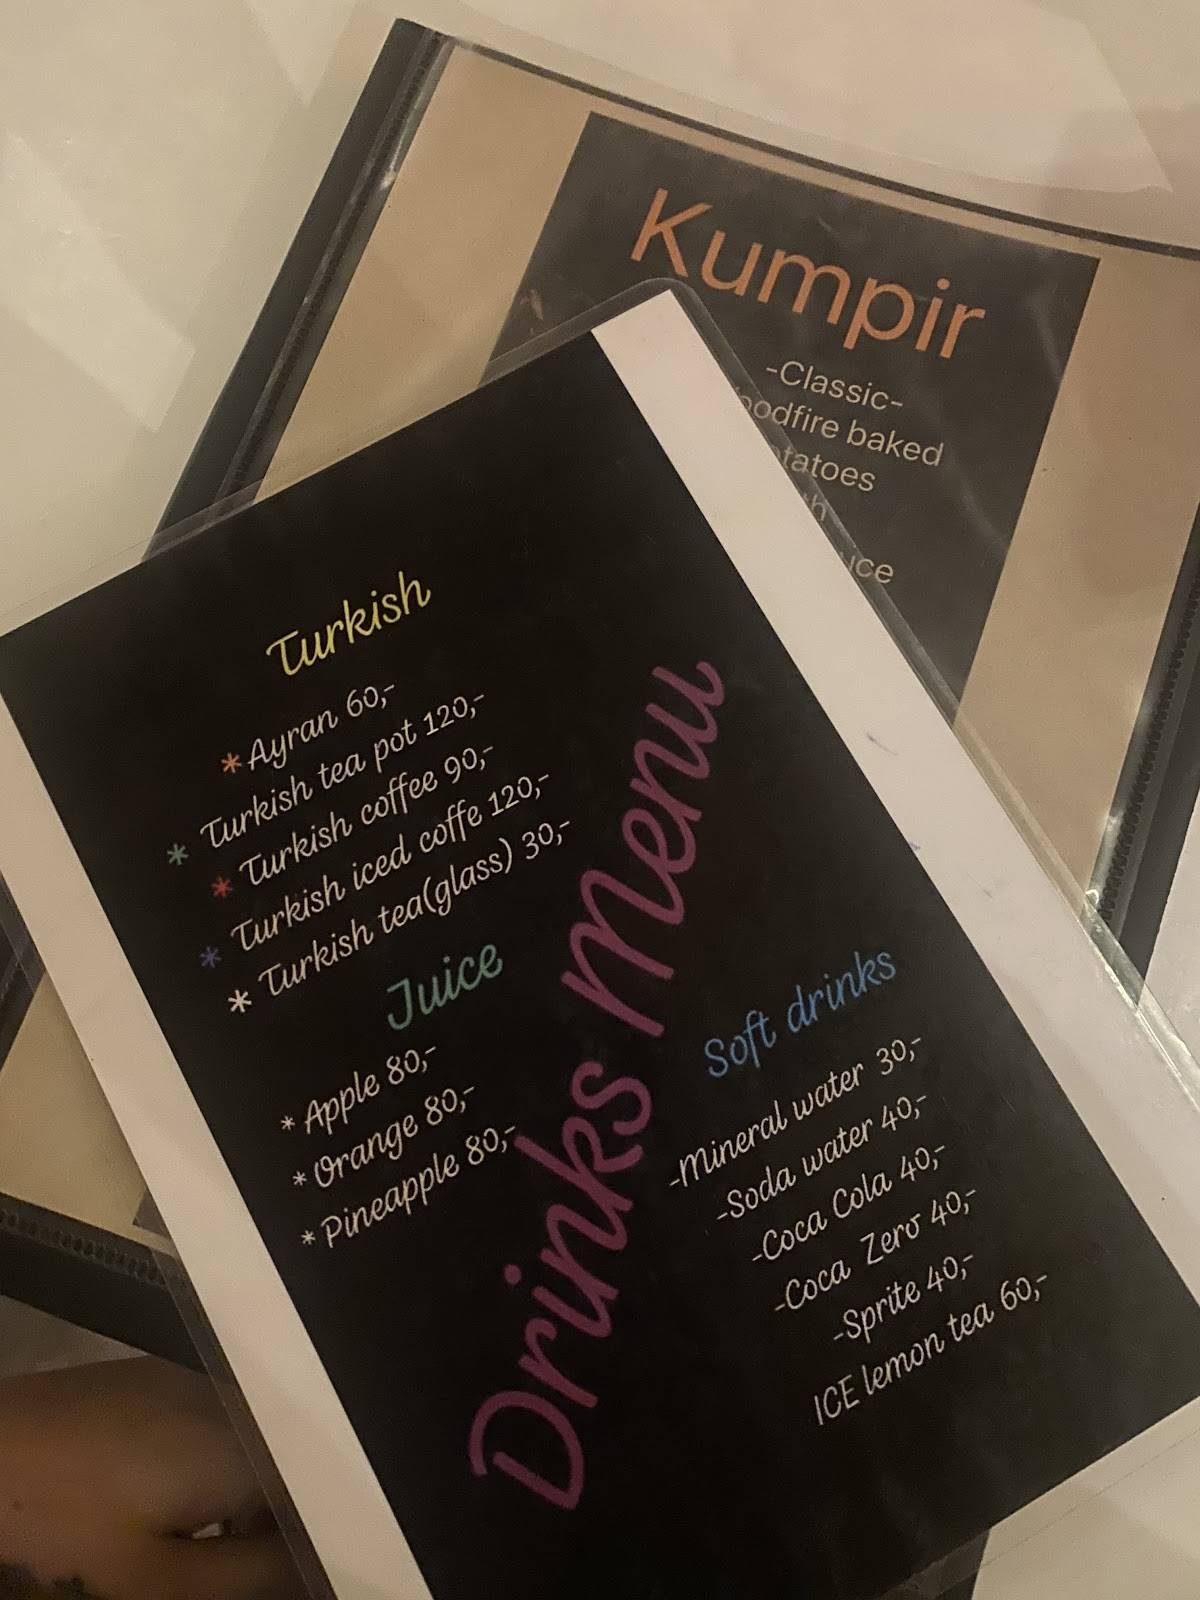 Kumpir
-Classic-
baked
Turkish
*Ayran 60,-
* Turkish tea pot 120,-
* Turkish coffee 90,-
* Turkish iced coffe 120,-
* Turkish tea(glass) 30,-
Juice
* Apple 80,-
* Orange 80,-
* Pineapple 80,-
Drinks Menu
Soft drinks
-Mineral water 30,-
-Soda water 40,-
-Coca Cola 40,-
-Coca Zero 40,-
-Sprite 40,-
ICE lemon tea 60,-